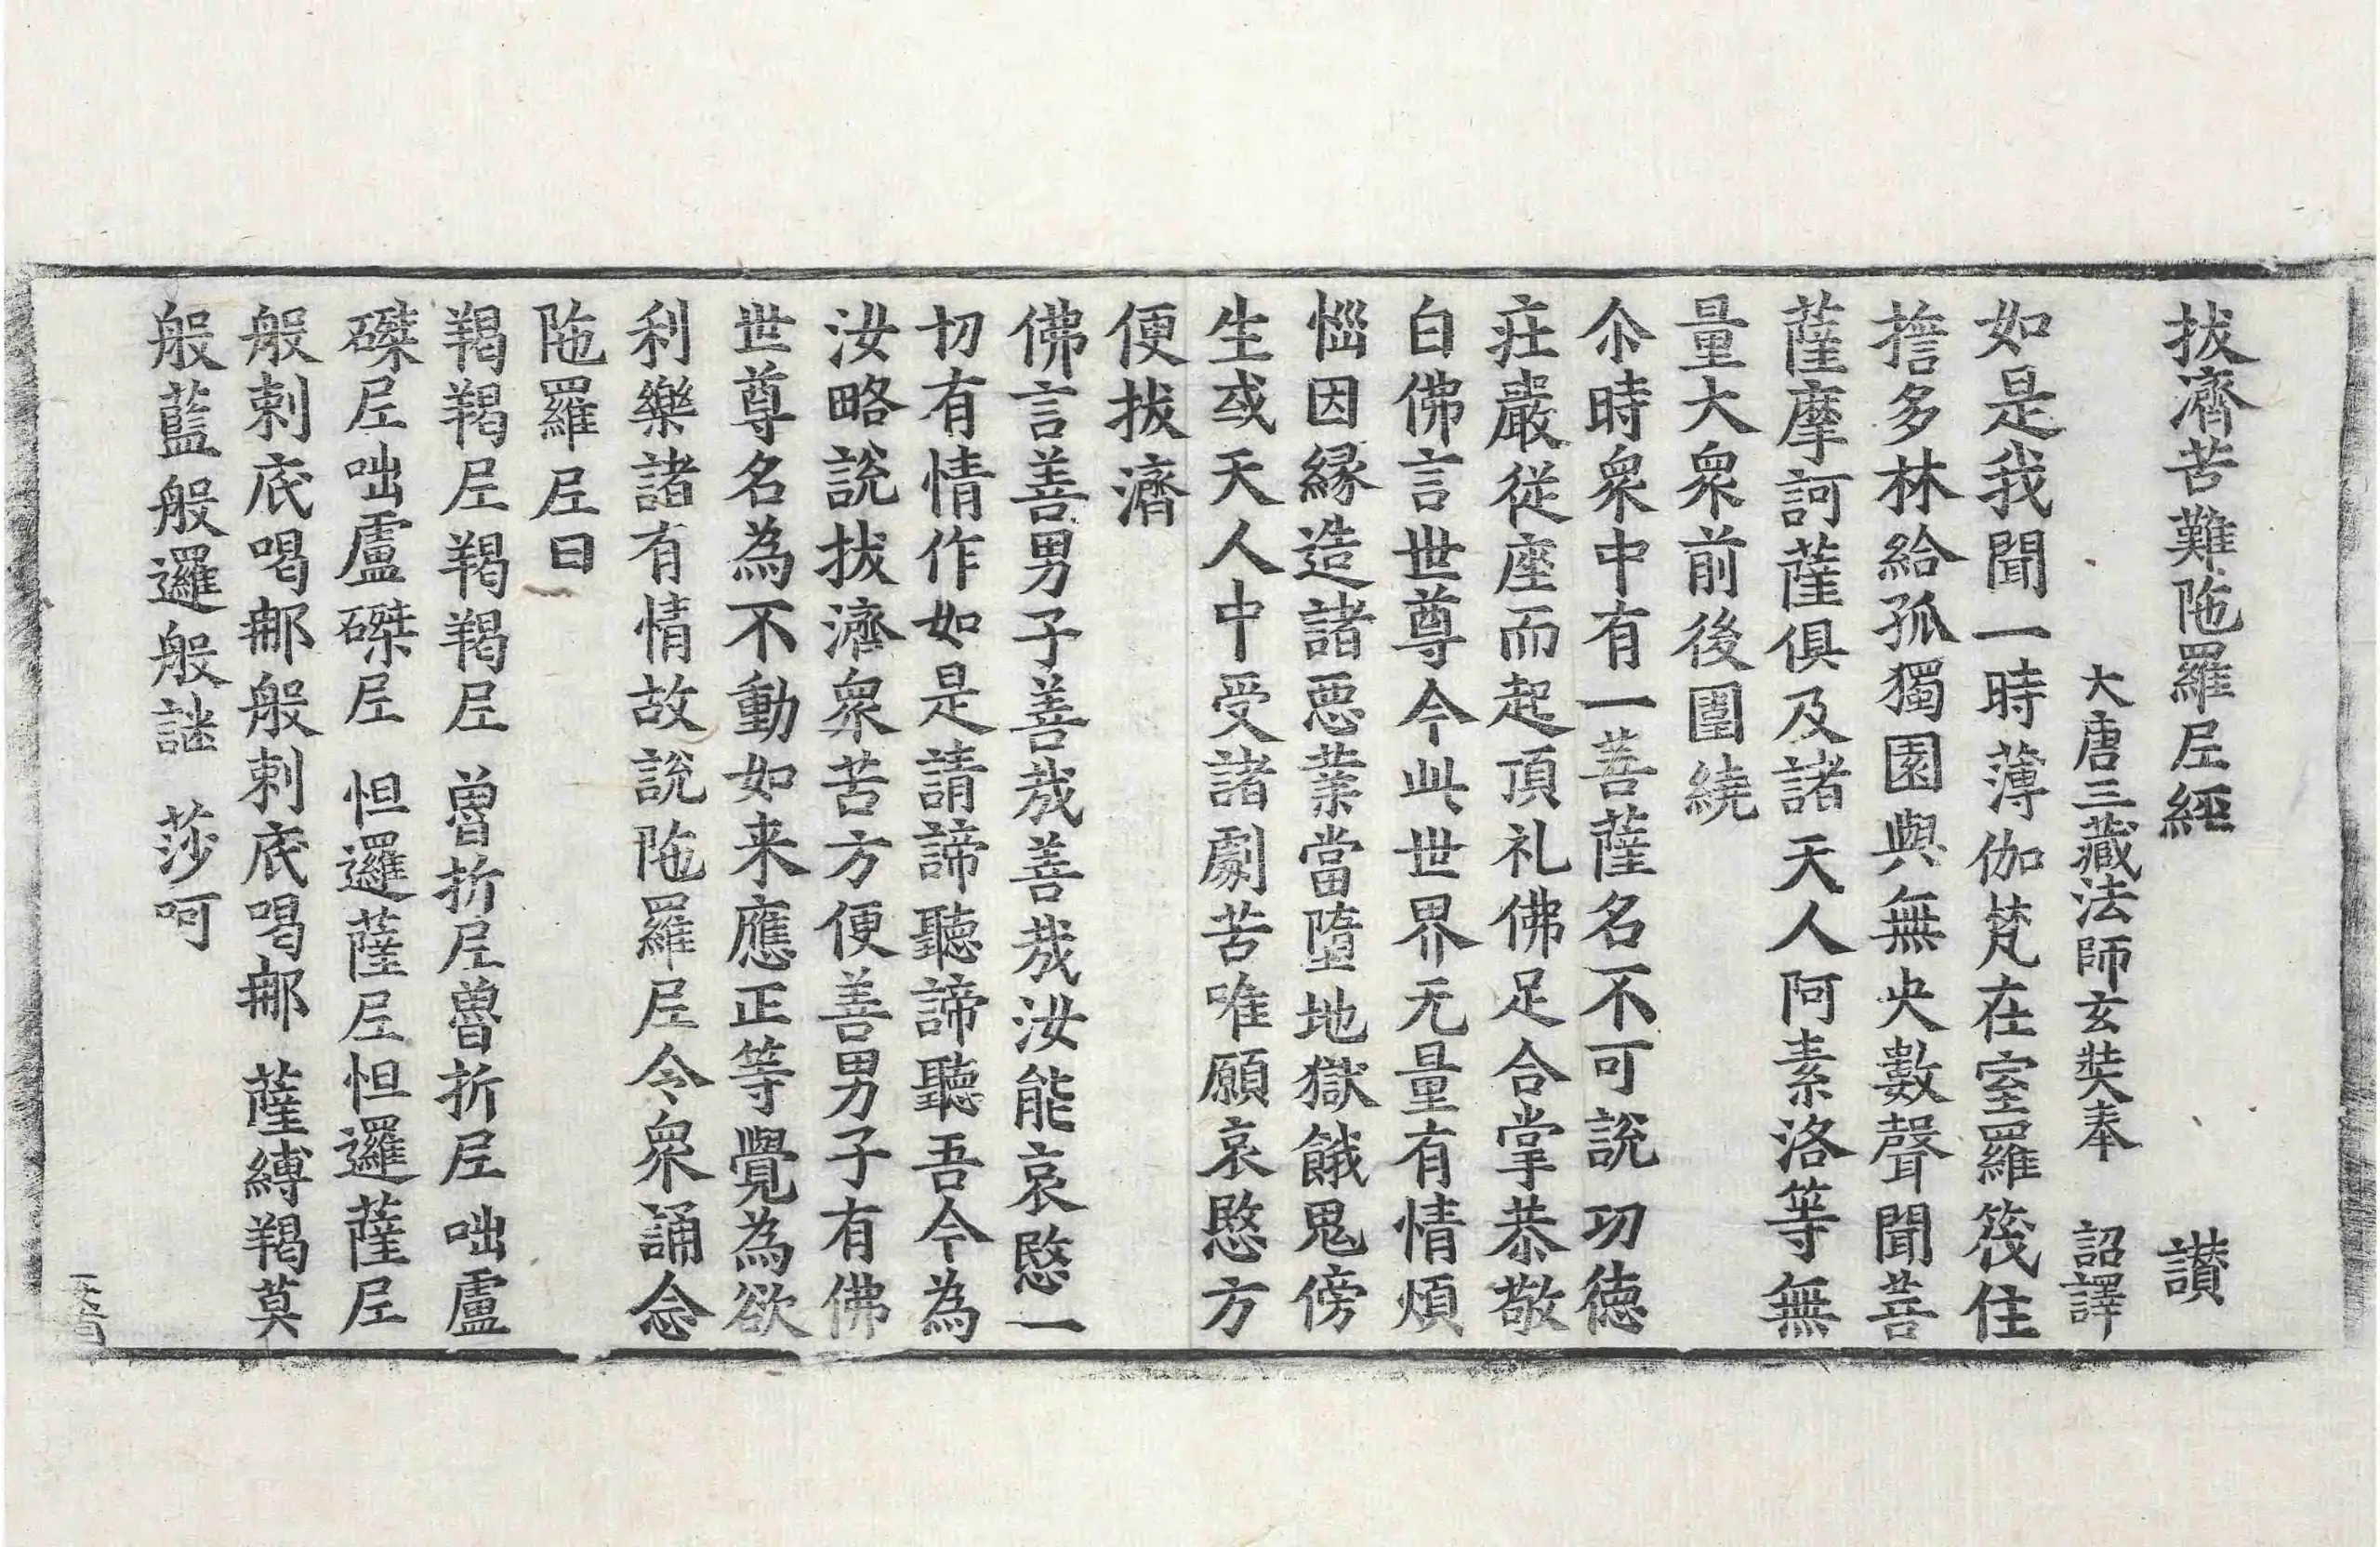 拔濟苦難陁羅尼經 讃
大唐三藏法師玄奘奉 詔譯
如是我聞一時薄伽梵在室羅筏住
擔多林給孤獨園與無央數聲聞菩
薩摩訶薩俱及諸天人阿素洛等無
量大衆前後圍繞
尒時衆中有一菩薩名不可說功德
莊嚴從座而起頂礼佛足合掌恭敬
白佛言世尊今此世界无量有情煩
惱因緣造諸惡業當墮地獄餓鬼傍
生或天人中受諸劇苦唯願哀愍方
便拔濟
佛言善男子善哉善哉汝能哀愍一
切有情作如是請諦聽諦聽吾今為
汝略說拔濟衆苦方便善男子有佛
世尊名為不動如来應正等覺為欲
利樂諸有情故說陁羅尼令衆誦念
陁羅尼曰
羯羯尼羯羯尼 魯折尼魯折尼 咄盧
磔尼咄盧磔尼 怛邏薩尼怛邏薩尼
般剌底喝那般剌底喝那 薩縛羯莫
般藍般邏般謎 莎呵